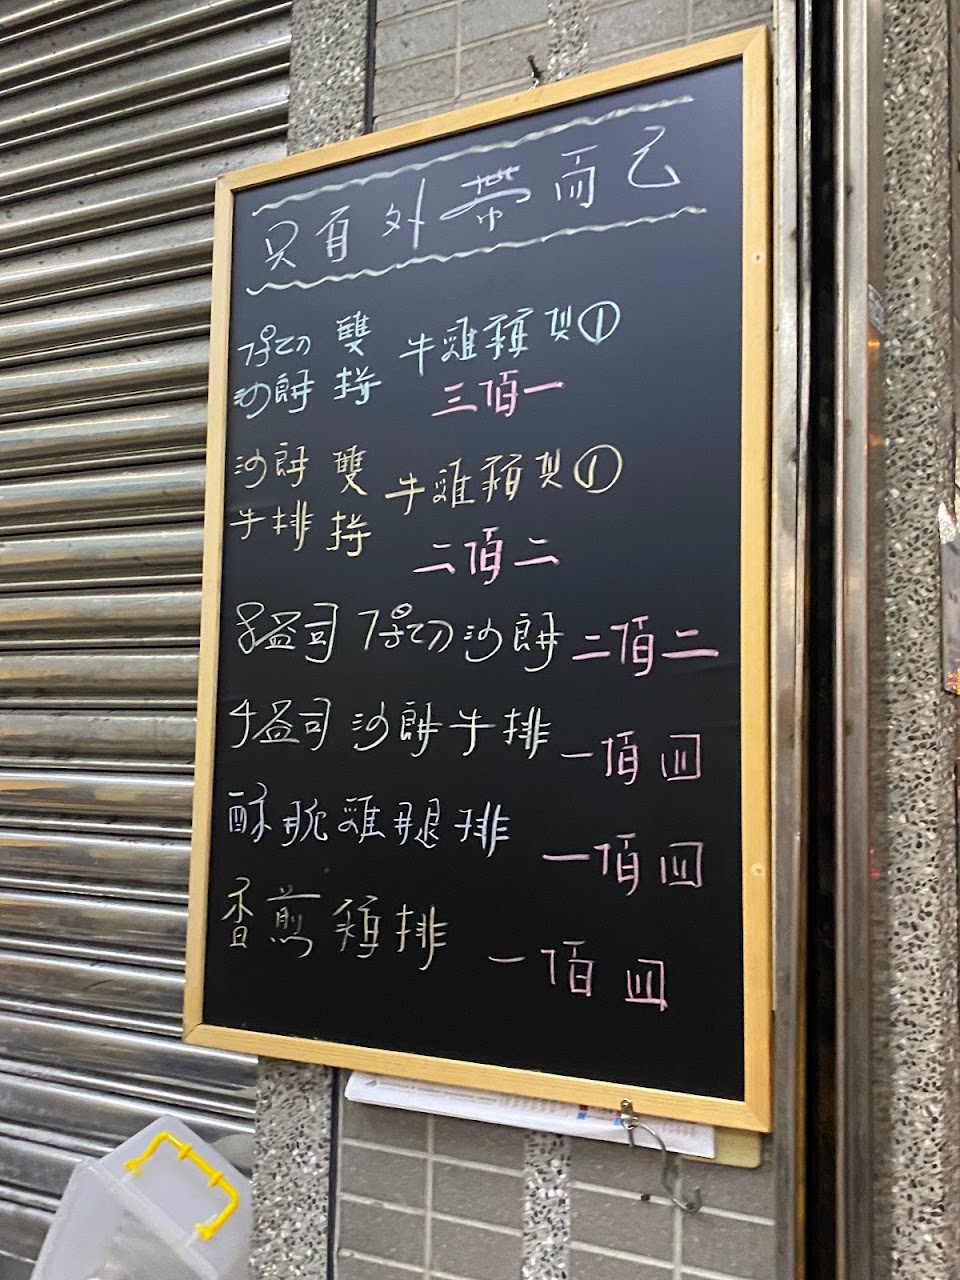 只有外帶而已
厚切沙朗 雙拼 牛雞豬選①
三佰一
沙朗牛排 雙拼 牛雞豬選①
二佰二
8盎司厚切沙朗 二佰二
4盎司沙朗牛排 一佰四
酥脆雞腿排 一佰四
香煎雞排 一佰四